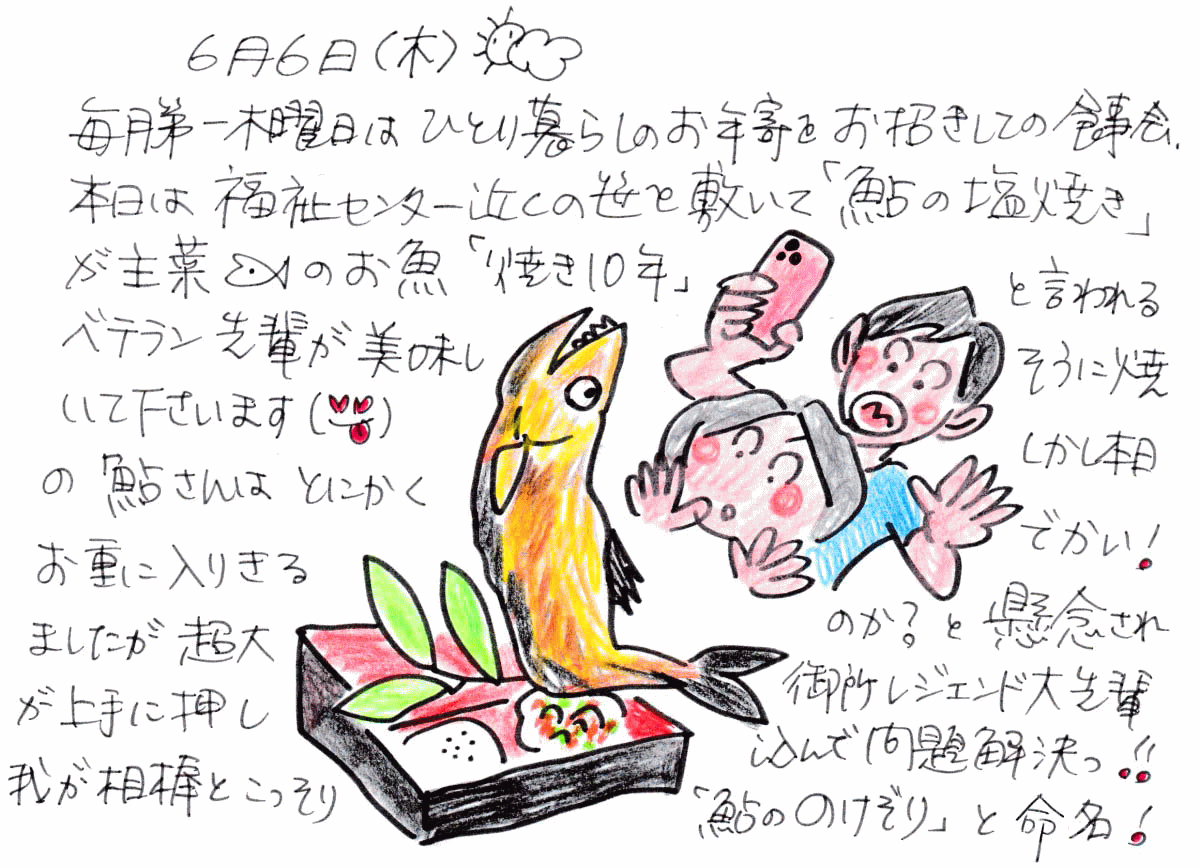 6月6日(木)
毎月第一木曜日はひとり暮らしのお年寄をお招きしての食事会、
本日は福祉センター近くの笹を敷いて「鮎の塩焼き」
が主菜のお魚「焼き10年」と言われる
ベテラン先輩が美味しそうに焼
いて下さいます( )しかし本日
の鮎さんはとにかくでかい!
お重に入りきるのか?と懸念され
ましたが超大御所レジェンド大先輩
が上手に押し込んで問題解決っ!!
我が相棒とこっそり「鮎ののけぞり」と命名!